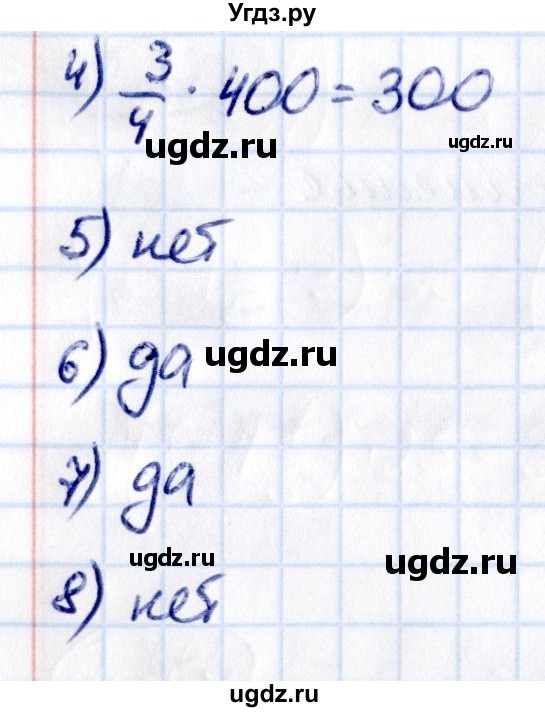 Угдз.ру
4) 3/4 · 400 = 300
ugdz.ru
ugdz.ru
5) нет
6) да
ugdz.ru
7) да
ugdz.ru
ugdz.ru
8) нет
ugdz.ru